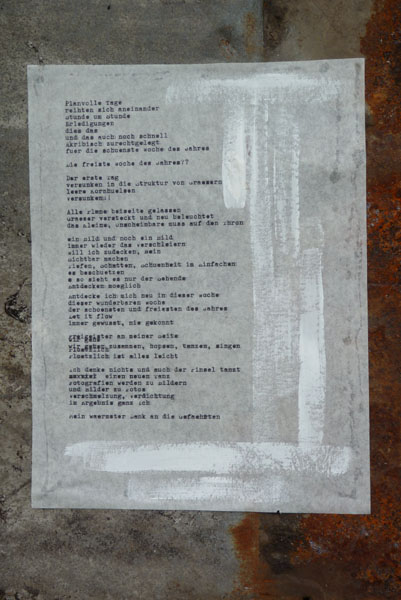 Planvolle Tage
reihten sich aneinander
Stunde um Stunde
Erledigungen
dies das
und das auch noch schnell
Akribisch zurechtgelegt
fuer die schoenste Woche des Jahres
Die freiste Woche des Jahres??
Der erste Tag
versunken in die Struktur von Graesern
leere Kornhuelsen
versunken!
Alle Plaene beiseite gelassen
Graeser versteckt und neu beleuchtet
das kleine, unscheinbare muss auf den Thron
ein Bild und noch ein Bild
Immer wieder das Verschleiern
will ich zudecken, nein
sichtbar machen
Tiefen, Schatten, Schoenheit im Einfachen
es beschuetzen
e so sieht es nur der Sehende
Entdecken moeglich
Entdecke ich mich neu in dieser Woche
dieser wunderbaren Woche
der schoensten und freiesten des Jahres
Let it flow
immer gewusst, nie gekonnt
Kreigeister an meiner Seite
wir gehen zusammen, hopsen, tanzen, singen
Ploetzlich ist alles leicht
Ich denke nichts und auch der Pinsel tanzt
einen neuen Tanz
Fotografien werden zu Bildern
und Bilder zu Fotos
Verschmelzung, Verdichtung
im Ergebnis ganz ich
Mein waermster Dank an die Gefaehrten